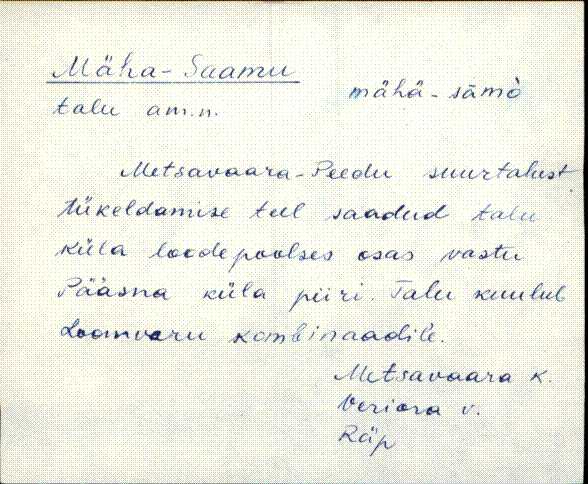 Mäha-Saamu mähä-sāmò
talu am.n.
Metsavaara-Peedu suurtalust
tükeldamise teel saadud talu
küla loodepoolses osas vastu
Pääsna küla piiri. Talu kuulub
Loomvaru kombinaadile.
Metsavaara k.
Veriora v.
Räp